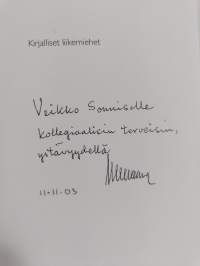 Kirjalliset liikemiehet
Veikko Sonniselle
kollegiaalisin terveisin,
ystävyydellä
11.11.03